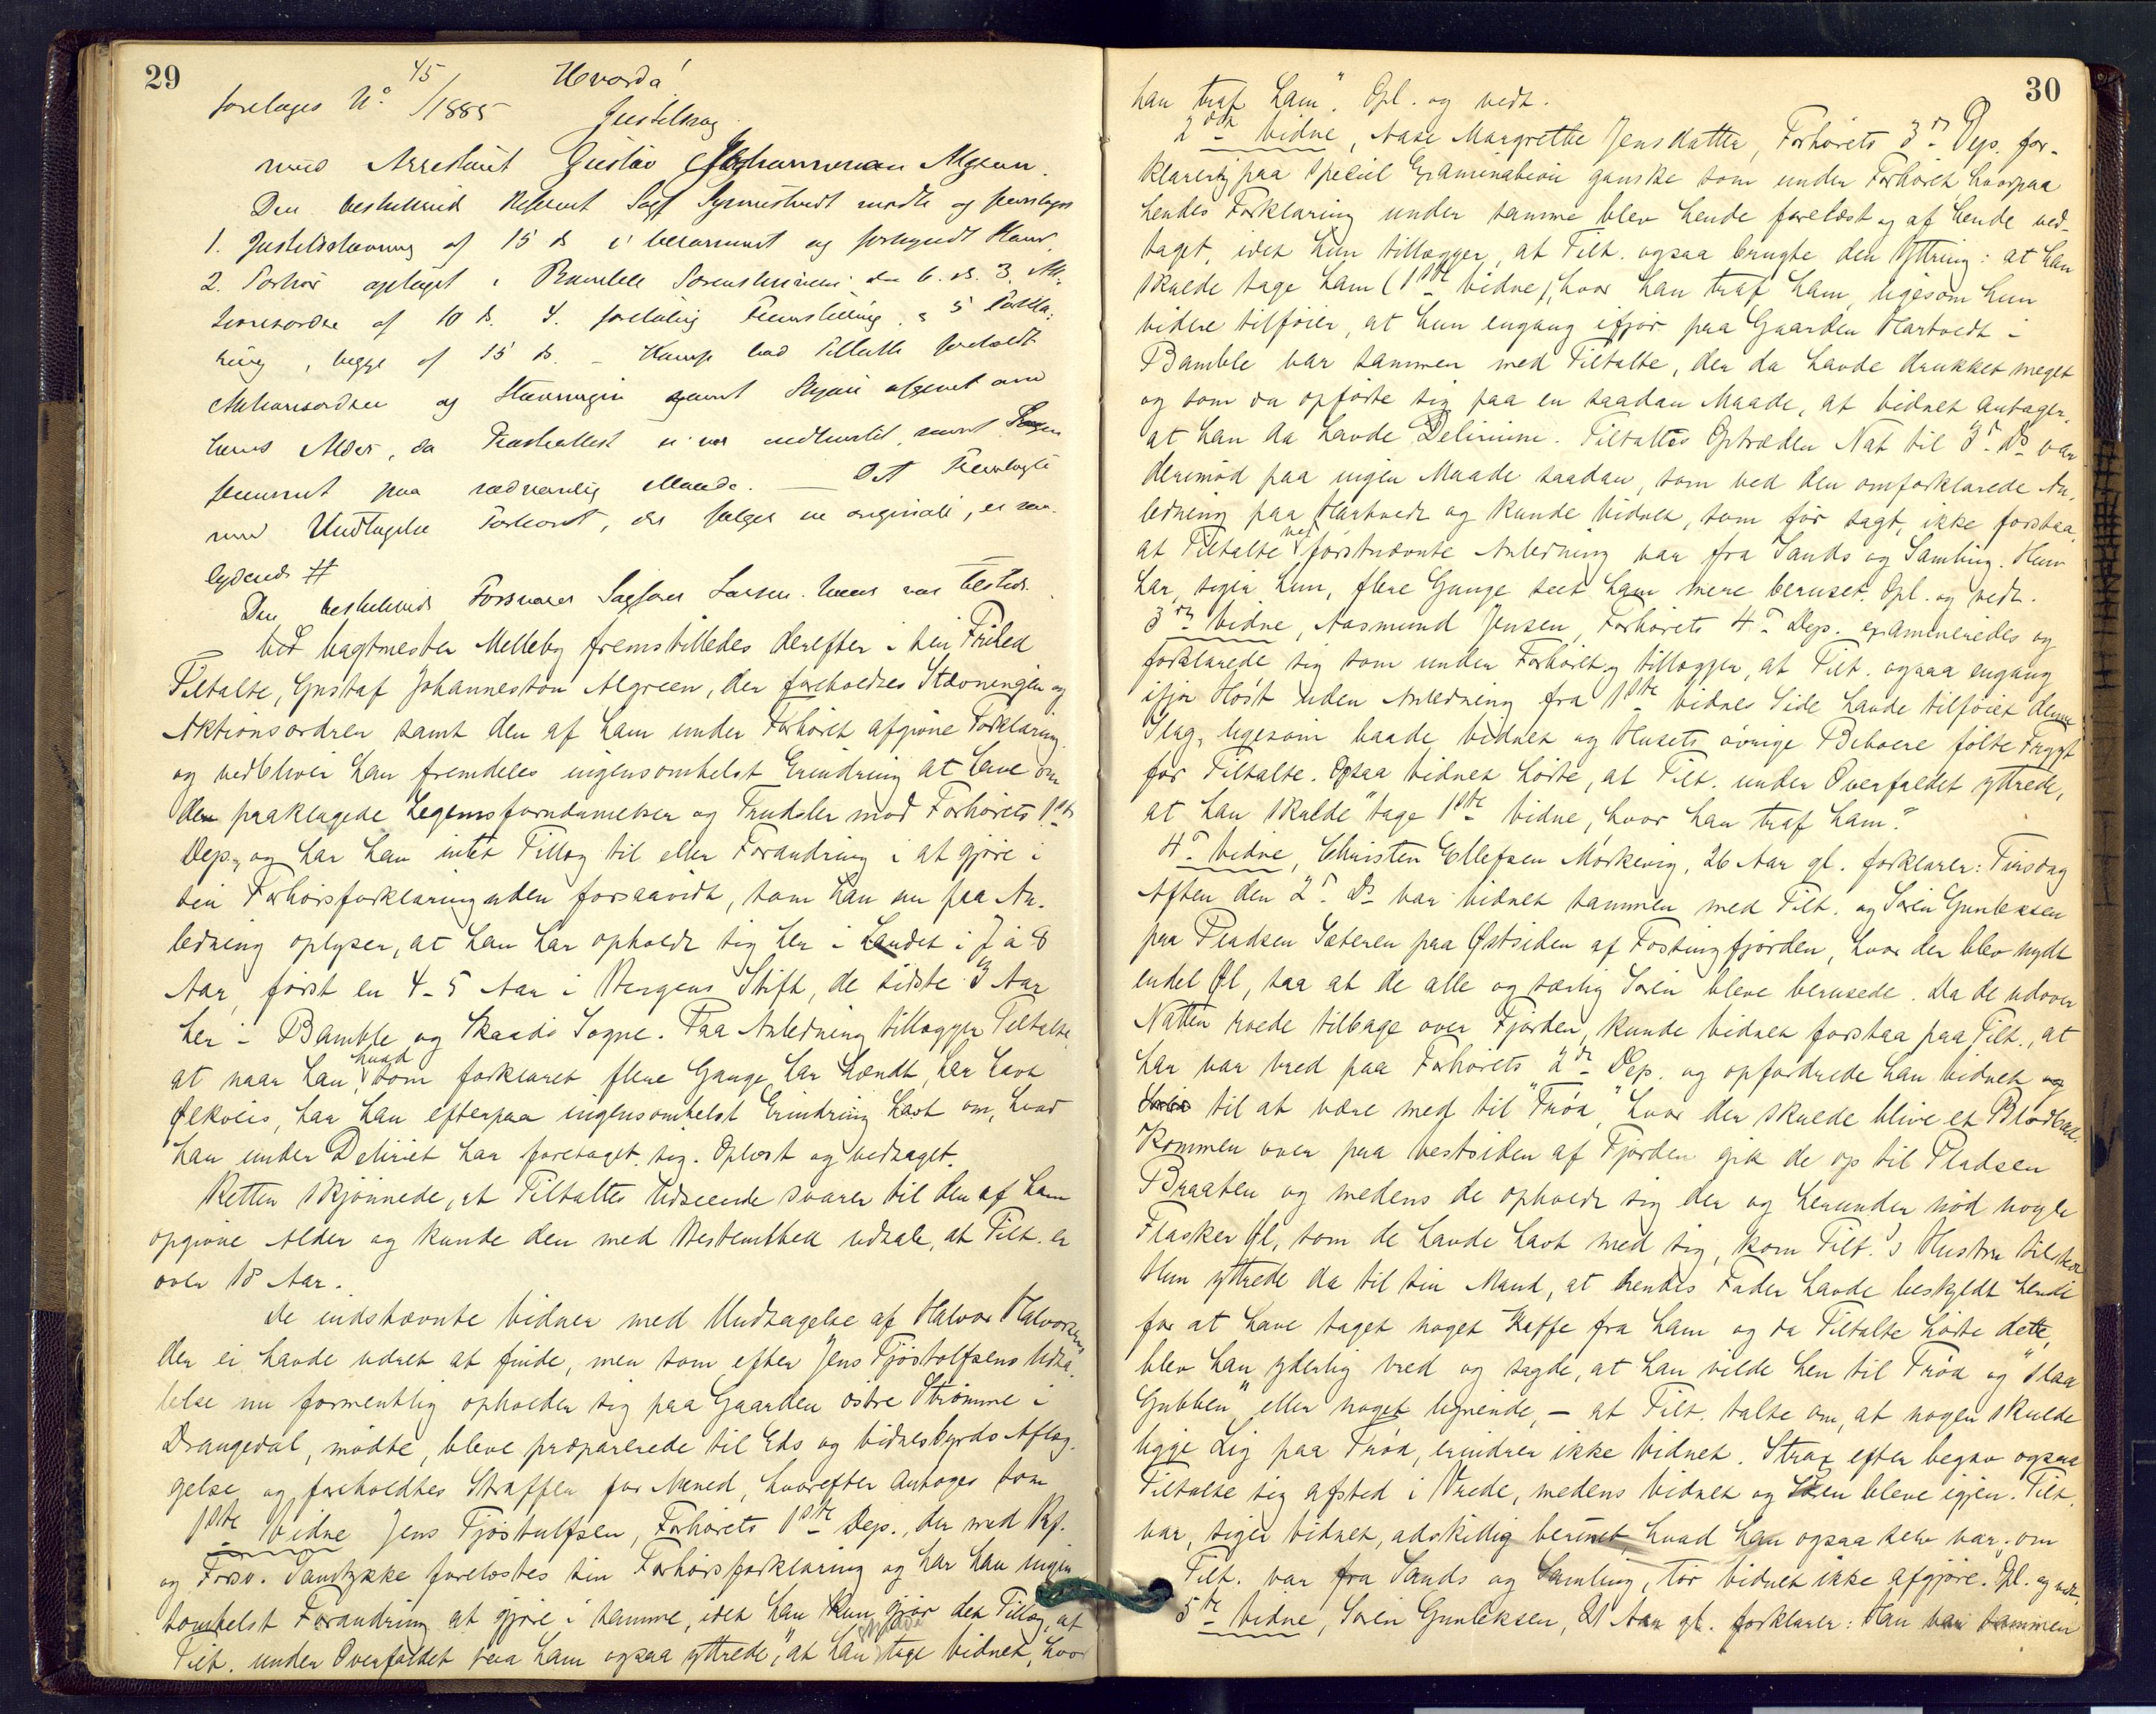 29
Hvorda!
foretages No. 45/1885 Justitssag
mod Arrestant Gustav Johannesen Algreen.
Den beskikkede Referent Sagf. mødte og fremlagde
1. Justitsstævning af 15 ds i berammet og forkyndt Stand
2. Forhør optaget i Bamble Sorenskriveri den 6. ds. 3. Ak-
tionsordre af 10 ds. 4. foreløbig Fremstilling, & 5 Forkla-
ring, begge af 15 ds. – havde Tiltalte foreholdt
Aktionsordren og Stævningen samt afgivet om
hans Alder, da ei var indhentet, samt Sagen
fremmet paa sædvanlig Maade. — Det Fremlagte
med Undtagelse Forhøret, der følger in originali, er saa-
lydende #
Den beskikkede Forsvarer Sagfører Larsen var tilstede.
Ved Vagtmester Melleby fremstilledes derefter i sin Frihed
Tiltalte, Gustaf Johanneson Algreen, der foreholdtes Stævningen og
Aktionsordren samt den af ham under Forhøret afgivne Forklaring
og vedbliver han fremdeles ingensomhelst Erindring at have om
den paaklagede Legemsfornærmelse og Trudsler mod Forhørets 1ste
Dep., og har han intet Tillæg til eller Forandring i at gjøre i
sin Forhørsforklaring uden forsaavidt, som han nu paa An-
ledning oplyser, at han har opholdt sig her i Landet i 7 à 8
Aar, først en 4-5 Aar i Bergens Stift, de sidste 3 Aar
her i Bamble og Skaadø Sogne. Paa Anledning tillægger Tiltalte
at naar han, hvad som forklaret flere Gange har hændt, har havt
Ølkolis, har han efterpaa ingensomhelst Erindring havt om, hvad
han under Deliriet har foretaget sig. Oplæst og vedtaget.
Retten skjønnede, at Tiltaltes Udseende svarer til den af ham
opgivne Alder og kunde den med Bestemthed udtale, at Tilt. er
over 18 Aar.
De indstævnte Vidner med Undtagelse af Halvor Halvorsen
der ei havde været at finde, men som efter Jens Tjøstolfsens Udta-
lelse nu formentlig opholder sig paa Gaarden østre Strømme i
Drangedal, mødte, bleve præparerede til Eds og Vidnesbyrds Aflæg-
gelse og foreholdtes Straffen for Mened, hvorefter antoges som
1ste Vidne Jens Tjøstulfsen, Forhørets 1ste Dep., der med Ref.
og Forsv. Samtykke forelæstes sin Forhørsforklaring og har han ingen
somhelst Forandring at gjøre i samme, idet han kun gjør det Tillæg, at
Tilt. under Overfaldet paa ham ogsaa yttrede, "at han skulde tage Vidnet, hvor
30
han traf ham". Opl. og vedt.
2det Vidne, Aase Margrethe Jensdatter, Forhørets 3die Dep. for-
klarer paa speciel Examination ganske som under Forhøret hvorpaa
hendes Forklaring under samme blev hende forelæst og af hende ved-
taget, idet hun tillægger, at Tilt. ogsaa brugte den Yttring: at han
skulde tage ham (1ste Vidne), hvor han traf ham, ligesom hun
videre tilføier, at hun engang ifjor paa Gaarden Hartvedt i
Bamble var sammen med Tiltalte, der da havde drukket meget
og som da opførte sig paa en saadan Maade, at Vidnet antager,
at han da havde Delirium. Tiltaltes Optræden Nat til 3die ds var
derimod paa ingen Maade saadan, som ved den omforklarede An-
ledning paa Hartvedt og kunde Vidnet, som før sagt, ikke forstaa,
at Tiltalte ved førstnævnte Anledning var fra Sands og Samling. Hun
har, siger hun, flere Gange seet ham mere beruset. Opl. og vedt.
3die Vidne, Aasmund Jensen, Forhørets 4de Dep. examineredes og
forklarede sig som under Forhøret og tillægger, at Tilt. ogsaa engang
ifjor Høst uden Anledning fra 1ste Vidnes Side havde tilføiet denne
Slag, ligesom baade Vidnet og Husets øvrige Beboere følte Frygt
for Tiltalte. Ogsaa Vidnet hørte, at Tilt. under Overfaldet yttrede,
at han skulde "tage 1ste Vidne, hvor han traf ham".
4de Vidne, Christen Ellefsen Mørkevig, 26 Aar gl. forklarer: Tirsdag
Aften den 2den ds var Vidnet sammen med Tilt. og Søren Gunleksen
paa Pladsen Sæteren paa Østsiden af Fostingfjorden, hvor der blev nydt
endel Øl, saa at de alle og særlig Søren bleve berusede. Da de udover
Natten roede tilbage over Fjorden, kunde Vidnet forstaa paa Tilt., at
han var vred paa Forhørets 2de Dep. og opfordrede han Vidnet og
Søren til at være med til "Trøa", hvor der skulde blive et Blodbad.
Kommen over paa Vestsiden af Fjorden gik de op til Pladsen
Braaten og medens de opholdt sig der og herunder nød nogle
Flasker Øl, som de havde havt med sig, kom Tilt.'s Hustru tilstede
Hun yttrede da til sin Mand, at hendes Fader havde beskyldt hende
for at have taget noget Kaffe fra ham og da Tiltalte hørte dette,
blev han yderlig vred og sagde, at han vilde hen til Trøa og "slaa
Gubben" eller noget lignende, – at Tilt. talte om, at nogen skulde
ligge Lig paa Trøa, erindrer ikke Vidnet. Strax efter begav ogsaa
Tiltalte sig afsted i Vrede, medens Vidnet og Søren bleve igjen. Tilt.
var, siger Vidnet, adskillig beruset, hvad han ogsaa selv var; om
Tilt. var fra Sands og Samling, tør Vidnet ikke afgjøre. Opl. og vedt.
5te Vidne, Søren Gunleksen, 21 Aar gl. forklarer: Han var sammen